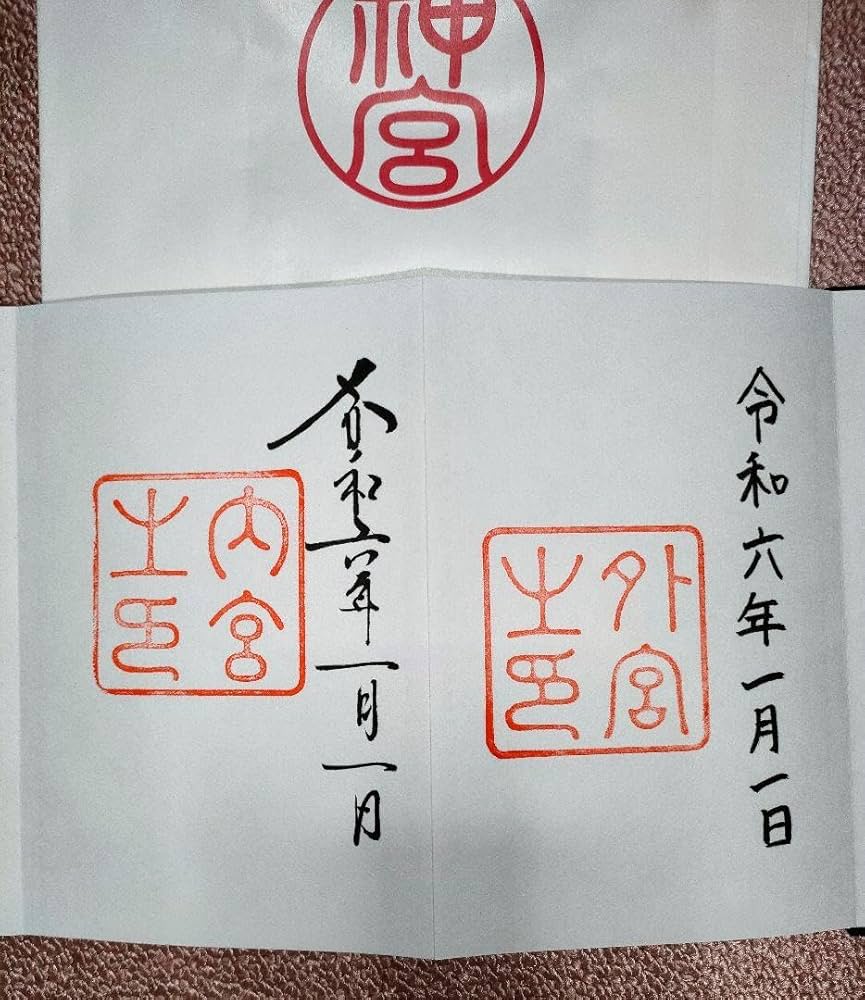 神宮
令和六年一月一日
外宮
之印
令和六年一月一日
内宮
之印